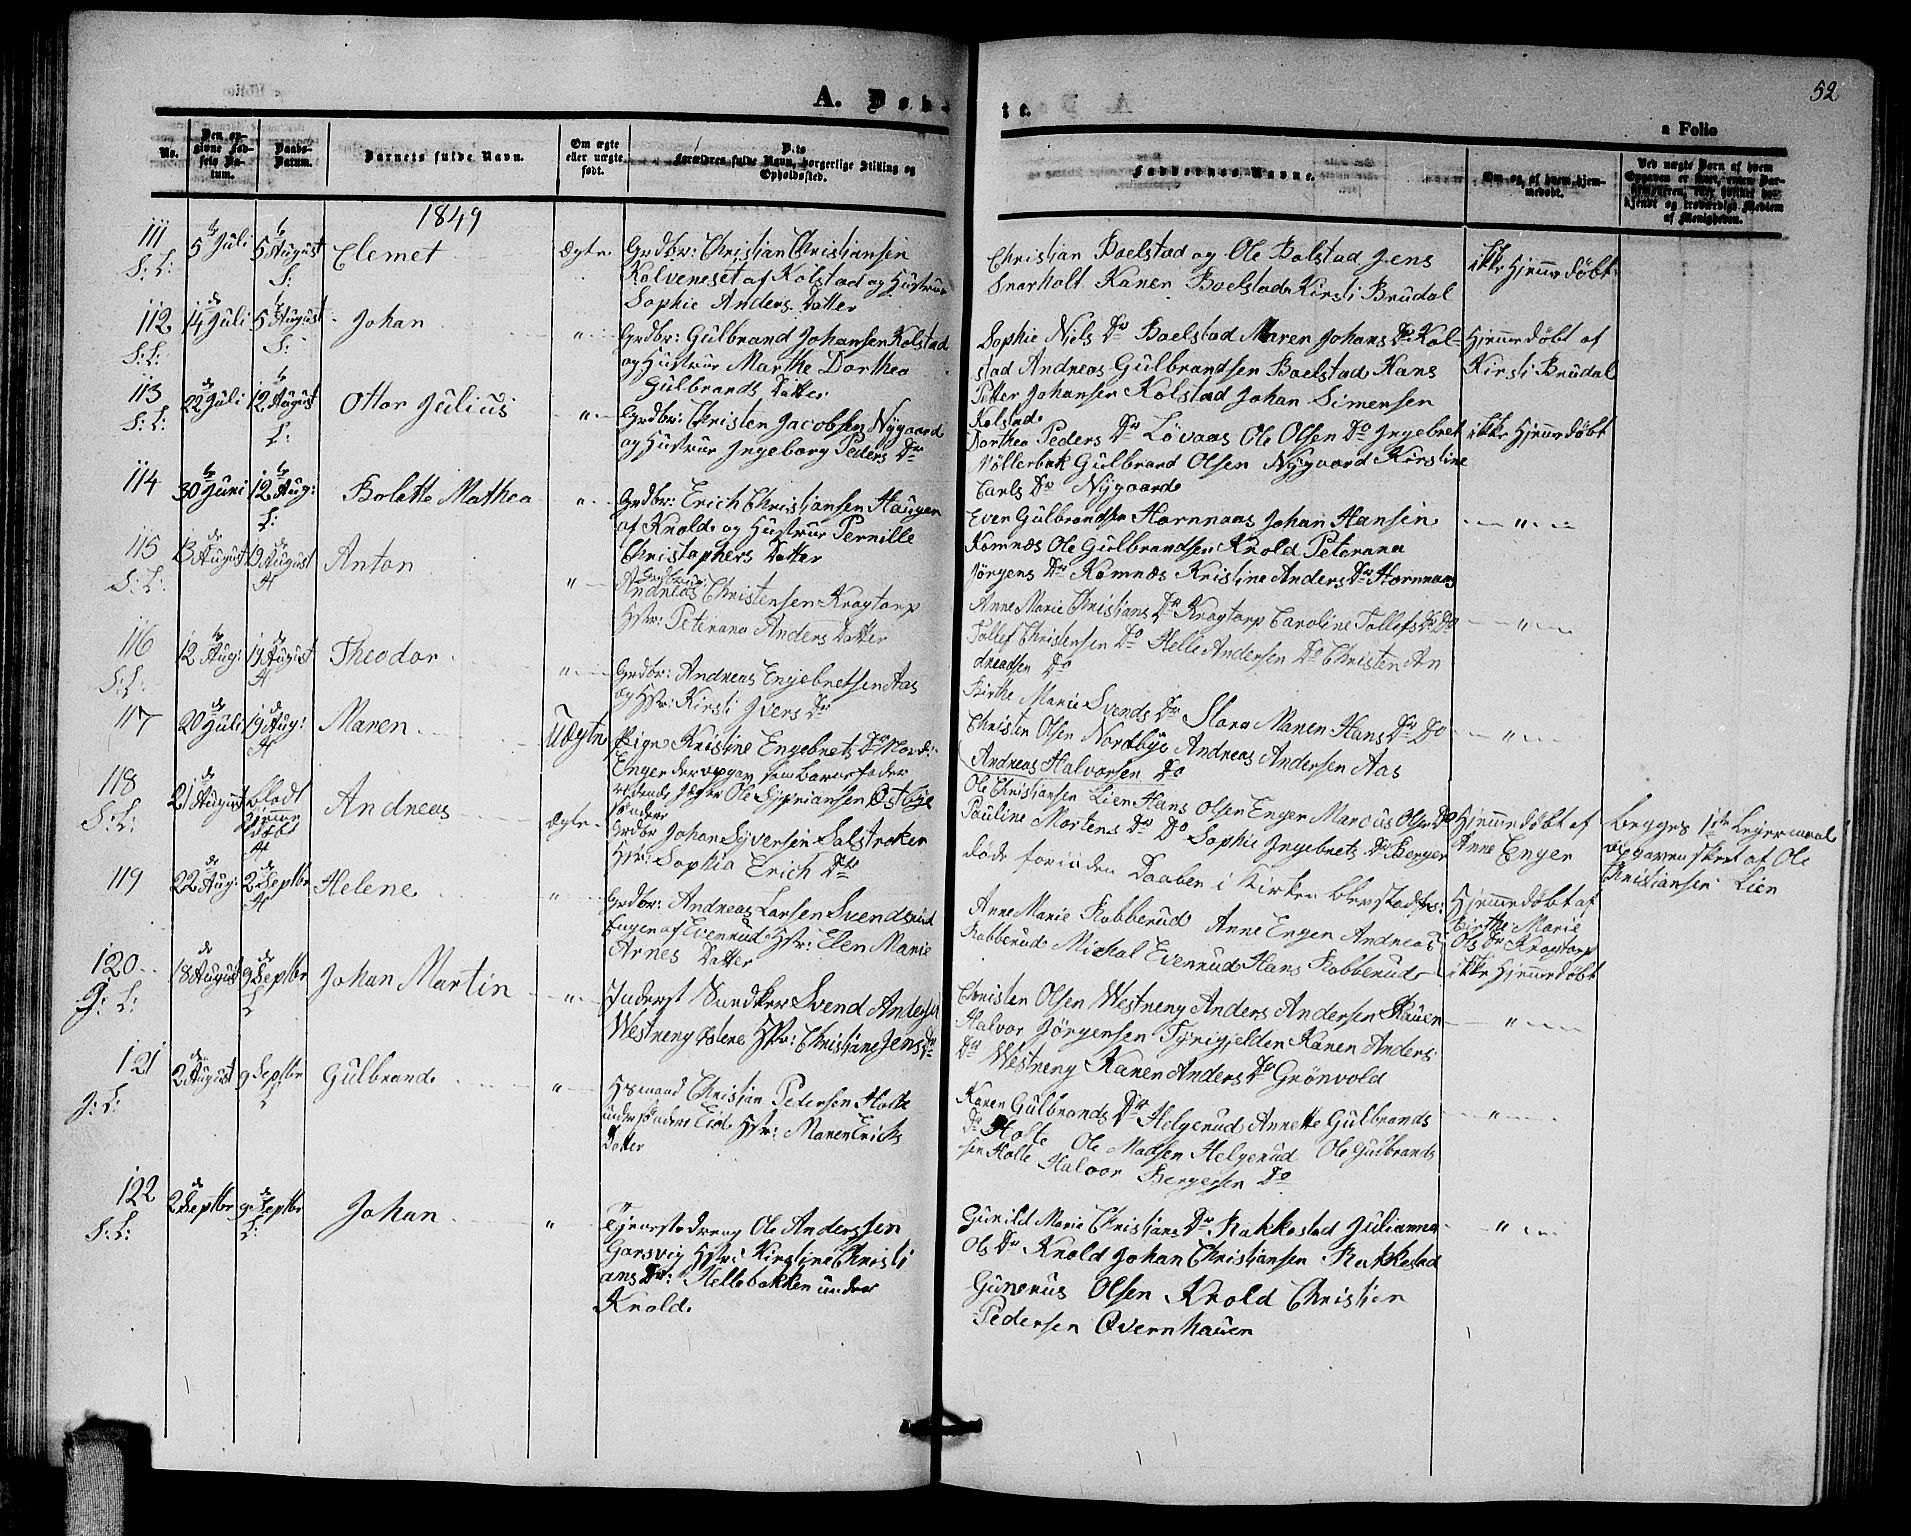 52
A. Døb-
te.
a Folio
No.
Den op-
givne Fød-
sels Da-
tum.
Daabs-
Datum.
Barnets fulde Navn.
Om ægte
eller uægte
født.
Forældres fulde Navn, borgerlige Stilling og
Opholdssted.
Faddernes Navne.
Om og af hvem hjem-
medøbt.
1849
111 5 Juli 5 August Clemet Ægte Grdbr: Christian Christiansen
Kolveneset af Kolstad og Hustrue
Sophie Anders Datter
Christian Boelstad og Ole Bolstad Jens
Snarholt Karen Boelstad Kirsti Brudal
ikke Hjemmedøbt
112 14 Juli 5 August Johan " Grdbr: Gulbrand Johansen Kolstad
og Hustrue Marthe Dorthea
Gulbrands Datter
Sophie Niels Dr Boelstad Maren Johans Dr Kol-
stad Andreas Gulbrandsen Boelstad Hans
Petter Johansen Kolstad Johan Simensen
Kolstad
Hjemmedøbt af
Kirsti Brudal
113 22 Juli 12 August Otto Julius " Grdbr: Christen Jacobsen Nygaard
og Hustrue Ingeborg Peders Dr
Dorthea Peders Dr Lövaas Ole Olsen Do Ingebret
Möllerbak Gulbrand Olsen Nygaard Kirstine
Carls Dr Nygaard
ikke Hjemmedøbt
114 30 Juni 12 Aug: Bolette Mathea " Grdbr: Erich Christiansen Haugen
af Knold og Hustrue Pernille
Christophers Datter
Even Gulbrandsen Hornnaas Johan Hansen
Komnæs Ole Gulbrandsen Knold Peterana
Jörgens Dr Komnæs Kristine Anders Dr Hornnaas
"
115 13 August 19 August Anton " Grdbr:
Andreas Christensen Kragtorp
Hstr: Peterana Anders Datter
Anne Marie Christians Dr Kragtorp Caroline Tollefs Dr Do
Tollef Christensen Do Helle Andersen Do Christen An
dreasen Do
"
116 12 Aug: 19 August Theodor " Grdbr: Andreas Engebretsen Aas
og Hstr: Kirsti Ivers Dr
Birthe Marie Svends Dr Slara Maren Hans Dr Do
Christen Olsen Nordbye Andreas Andersen Aas
Andreas Halvorsen Do
"
117 20 Juli 19 Aug: Maren Uægte Pige Kristine Engebrets Dr Nordr:
Enger der opgav som Barnefader
Ole Syprians\en Østbye
Ole Christiansen Lien Hans Olsen Enger Marcus Olsen Do
Pauline Mortens Dr Do Sophie Ingebrets Dr Berger
Hjemmedøbt af
Anne Enger
begges 1ste Leiermaal
opgaven skeet af Ole
Christiansen Lien
118 21 August blodt
Hjemme
døbt
Andreas Ægte Grdbr Johan Syversen Solstroken
Hstr: Sophia Erich Dtr
døde forinden Daaben i Kirken
Hjemmedøbt af
Birthe Marie
Ols Dr Kragtorp
119 22 Aug: 2 Septbr Helene " Grdbr: Andreas Larsen Svendsrud
Eugen af Evenrud Hstr: Elen Marie
Arnes Datter
Anne Marie Robberud Anne Engen Andreas
Robberud Mickal Evenrud Hans Robberud
ikke Hjemmedøbt
120 18 August 9 Septbr Johan Martin " Inderst Svend Andersen
Westneng Hstr: Christiane Jens Dr
Christen Olsen Westneng Anders Andersen Hauen
Halvor Jörgensen Tyrigjelden Karen Anders
Dr Westneng Karen Anders Dr Grönvold
"
121 2 August 9 Septbr Gulbrand " Husmand Christian Pedersen Holte
under Søndre Eid Hstr: Maren Erichs
Datter
Karen Gulbrands Dr Helgerud Annette Gulbrands
Dr Holte Ole Madsen Helgerud Ole Gulbrands
sen Holte Halvor Bergersen Do
"
122 2 Septbr 9 Septbr Johan " Tjenestedreng Ole Anderssen
Garsvig Hstr: Kirstine Christi
ans Dr: Hellebakken under
Knold
Gunild Marie Christians Dr Rakkestad Julianna
Ols Dr Knold Johan Christiansen Rakkestad
Gunerus Olsen Knold Christian
Pedersen Qvernhauen
"